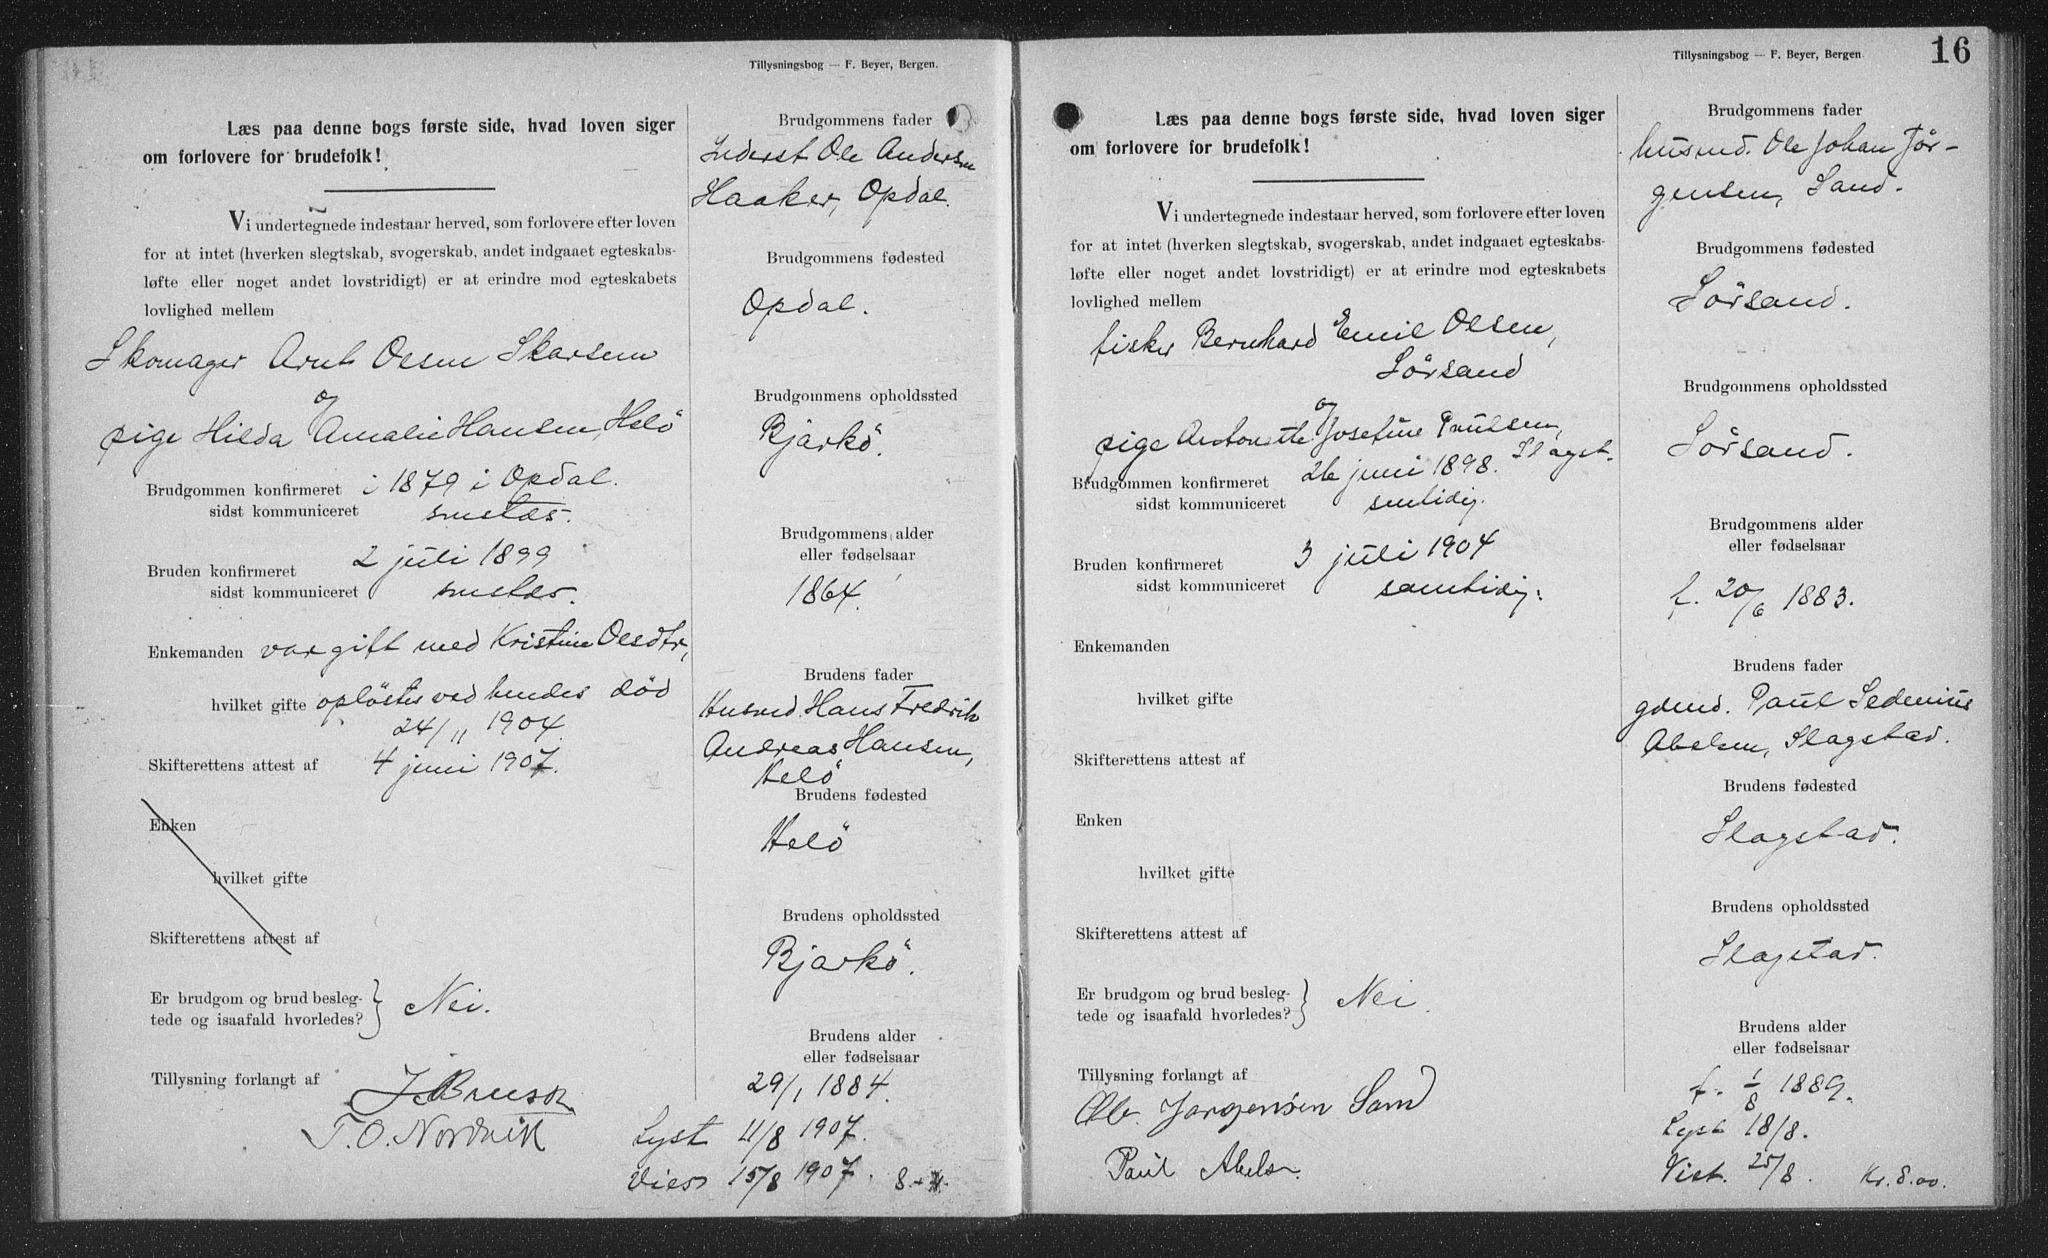 Tillysningsbog — F. Beyer, Bergen.
Læs paa denne bogs første side, hvad loven siger
om forlovere for brudefolk!
Vi undertegnede indestaar herved, som forlovere efter loven
for at intet (hverken slegtskab, svogerskab, andet indgaaet egteskabs-
løfte eller noget andet lovstridigt) er at erindre mod egteskabets
lovlighed mellem
Skomager Arnt Olsen Skarsem
og
pige Hilda Amalie Hansen, Helö
Brudgommen konfirmeret i 1879 i Opdal.
sidst kommuniceret smstds.
Bruden konfirmeret 2 juli 1899
sidst kommuniceret smstds.
Enkemanden var gift med Kristine Olsdtr,
hvilket gifte opløstes ved hendes død
24/11 1904.
Skifterettens attest af 4 juni 1907.
Enken
hvilket gifte
Skifterettens attest af
Er brudgom og brud besleg-
tede og isaafald hvorledes? Nei.
Tillysning forlangt af
T. O. Nordvik
Brudgommens fader
Inderst Ole Andersen
Haaker, Opdal.
Brudgommens fødested
Opdal.
Brudgommens opholdssted
Bjarkö.
Brudgommens alder
eller fødselsaar
1864.
Brudens fader
Husmd. Hans Fredrik
Andreas Hansen,
Helö
Brudens fødested
Helö
Brudens opholdssted
Bjarkö.
Brudens alder
eller fødselsaar
29/1 1884.
Lyst 11/8 1907.
Viet 15/8 1907. 8-
16
Tillysningsbog — F. Beyer, Bergen.
Læs paa denne bogs første side, hvad loven siger
om forlovere for brudefolk!
Vi undertegnede indestaar herved, som forlovere efter loven
for at intet (hverken slegtskab, svogerskab, andet indgaaet egteskabs-
løfte eller noget andet lovstridigt) er at erindre mod egteskabets
lovlighed mellem
fisker Bernhard Emil Olsen,
Sörsand
og
pige Antonette Josefine Paulsen,
Slagst.
Brudgommen konfirmeret 26 juni 1898.
sidst kommuniceret smtidig.
Bruden konfirmeret 3 juli 1904
sidst kommuniceret samtidig.
Enkemanden
hvilket gifte
Skifterettens attest af
Enken
hvilket gifte
Skifterettens attest af
Er brudgom og brud besleg-
tede og isaafald hvorledes? Nei.
Tillysning forlangt af
Ole Jørgensen Sand
Paul Abelsn.
Brudgommens fader
husmd. Ole Johan Jør-
gensen, Sand.
Brudgommens fødested
Sörsand.
Brudgommens opholdssted
Sörsand.
Brudgommens alder
eller fødselsaar
f. 20/6 1883.
Brudens fader
gdmd. Paul Sedenius
Abelsen, Slagstad.
Brudens fødested
Slagstad.
Brudens opholdssted
Slagstad.
Brudens alder
eller fødselsaar
f. 1/8 1889.
Lyst 18/8.
Viet. 25/8. Kr. 8.00.